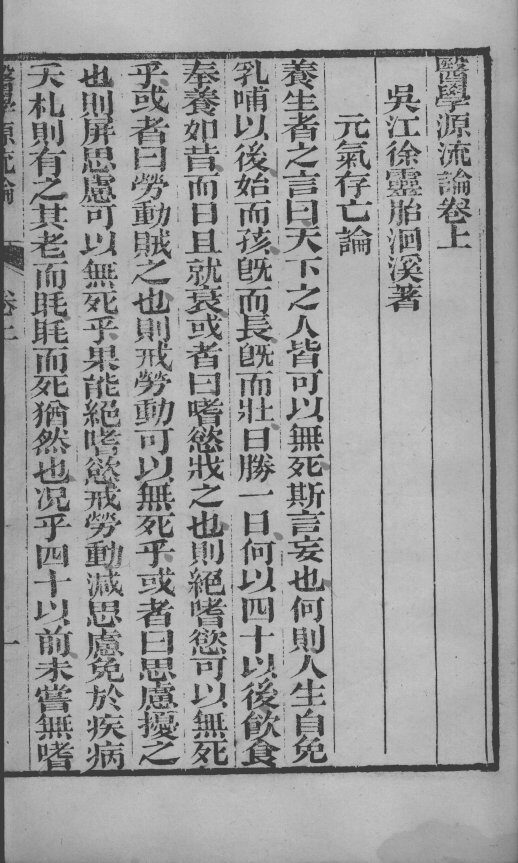 醫學源流論卷上
吳江徐靈胎洄溪著
元氣存亡論
養生者之言曰天下之人皆可以無死斯言妄也何則人生自免
乳哺以後始而孩旣而長旣而壯日勝一日何以四十以後飮食
奉養如昔而日且就衰或者曰嗜慾戕之也則絕嗜慾可以無死
乎或者曰勞動賊之也則戒勞動可以無死乎或者曰思慮擾之
也則屏思慮可以無死乎果能絕嗜慾戒勞動減思慮免於疾病
夭札則有之其老而眊眊而死猶然也况乎四十以前未嘗無嗜
醫學源流論 卷上 一